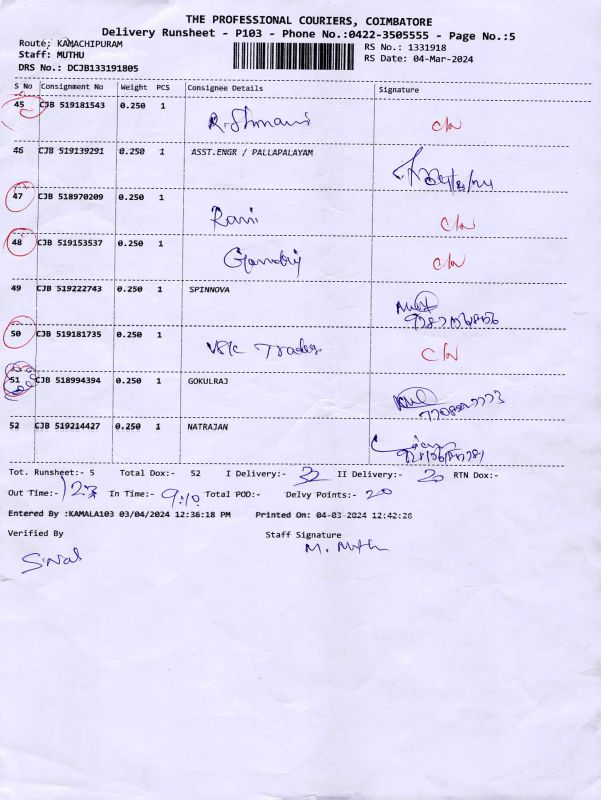 THE PROFESSIONAL COURIERS, COIMBATORE
Delivery Runsheet - P103 - Phone No.:0422-3505555 - Page No.:5
Route: KAMACHIPURAM RS No.: 1331918
Staff: MUTHU RS Date: 04-Mar-2024
DRS No.: DCJB133191805
S No Consignment No Weight PCS Consignee Details Signature
45 CJB 519181543 0.250 1
46 CJB 519139291 0.250 1 ASST.ENGR / PALLAPALAYAM
47 CJB 518970209 0.250 1 Rani
48 CJB 519153537 0.250 1
49 CJB 519222743 0.250 1 SPINNOVA
50 CJB 519181735 0.250 1 Traders
51 CJB 518994394 0.250 1 GOKULRAJ
52 CJB 519214427 0.250 1 NATRAJAN
Tot. Runsheet:- 5 Total Dox:- 52 I Delivery:- 32 II Delivery:- 20 RTN Dox:-
Out Time:- In Time:- 9:10 Total POD:- Delvy Points:- 20
Entered By :KAMALA103 03/04/2024 12:36:18 PM Printed On: 04-03-2024 12:42:26
Verified By Staff Signature
M. Muth